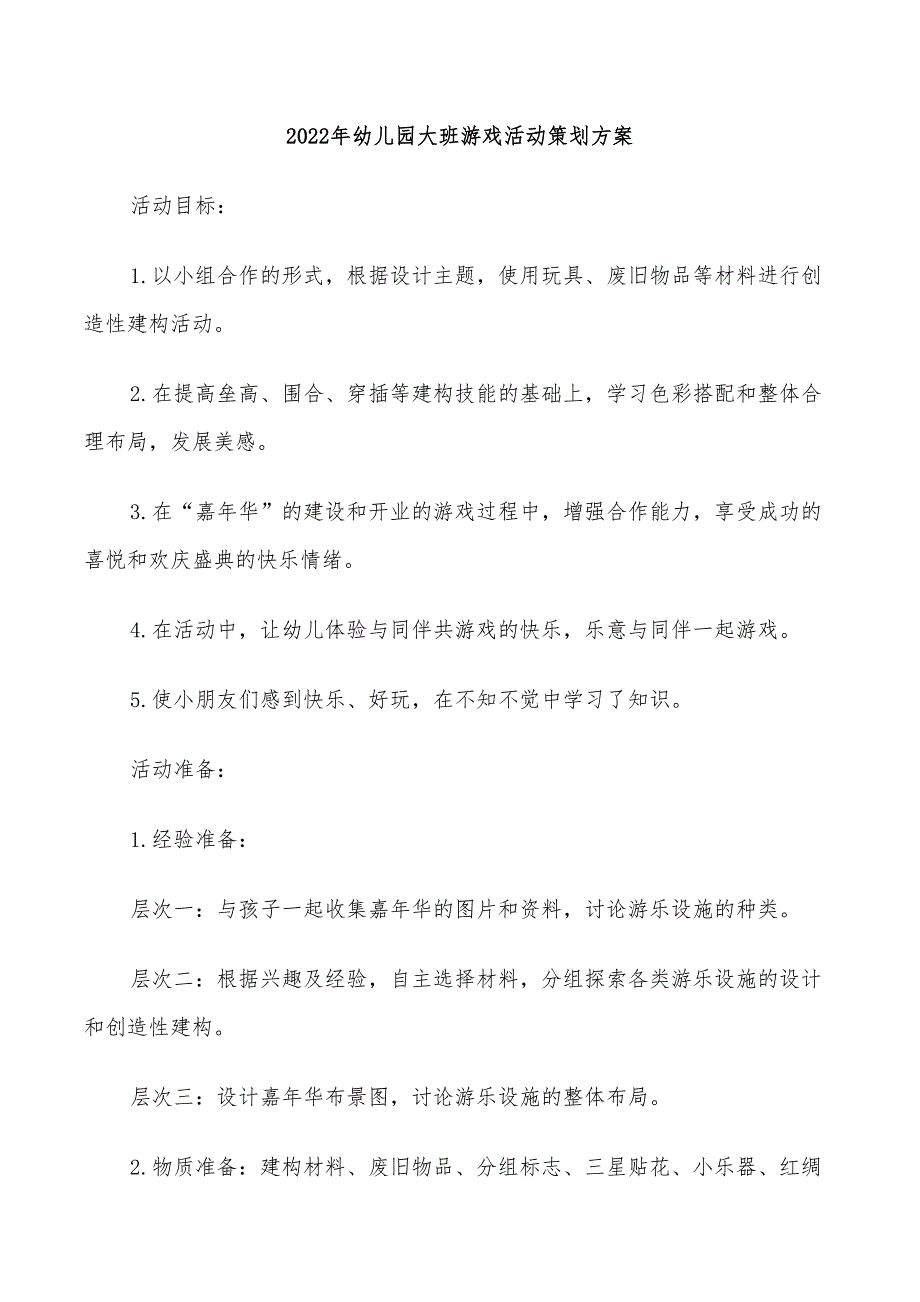 2022年幼儿园大班游戏活动策划方案
活动目标：
1.以小组合作的形式，根据设计主题，使用玩具、废旧物品等材料进行创
造性建构活动。
2.在提高垒高、围合、穿插等建构技能的基础上，学习色彩搭配和整体合
理布局，发展美感。
3.在“嘉年华”的建设和开业的游戏过程中，增强合作能力，享受成功的
喜悦和欢庆盛典的快乐情绪。
4.在活动中，让幼儿体验与同伴共游戏的快乐，乐意与同伴一起游戏。
5.使小朋友们感到快乐、好玩，在不知不觉中学习了知识。
活动准备：
1.经验准备：
层次一：与孩子一起收集嘉年华的图片和资料，讨论游乐设施的种类。
层次二：根据兴趣及经验，自主选择材料，分组探索各类游乐设施的设计
和创造性建构。
层次三：设计嘉年华布景图，讨论游乐设施的整体布局。
2.物质准备：建构材料、废旧物品、分组标志、三星贴花、小乐器、红绸